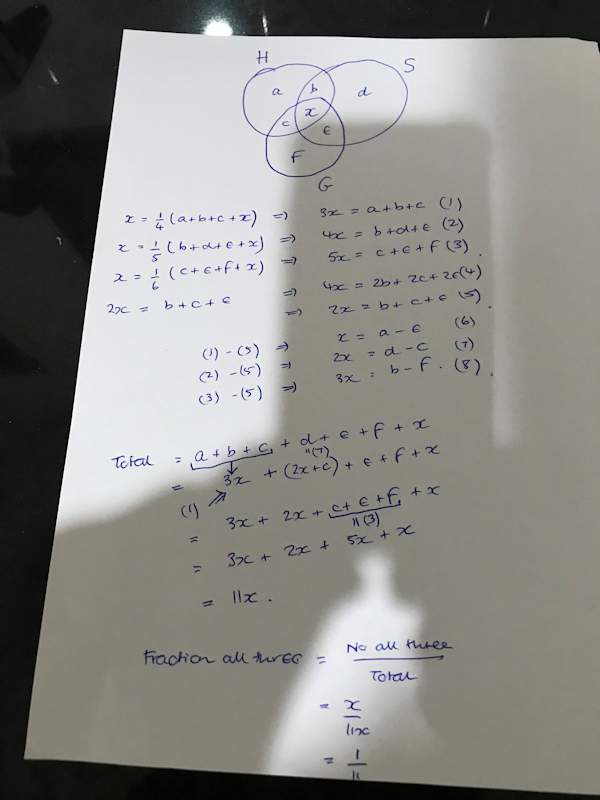 H
S
a b d
x
c e
F
G
x = 1/4 (a+b+c+x) => 3x = a+b+c (1)
x = 1/5 (b+d+e+x) => 4x = b+d+e (2)
x = 1/6 (c+e+f+x) => 5x = c+e+f (3).
2x = b+c+e => 4x = 2b+2c+2e (4)
=> 2x = b+c+e (5).
(1) - (5) => x = a - e (6)
(2) - (5) => 2x = d - c (7)
(3) - (5) => 3x = b - f. (8).
Total = a + b + c + d + e + f + x
"(7)
= 3x + (2x+c) + e + f + x
(1)
= 3x + 2x + c + e + f + x
"(3)
= 3x + 2x + 5x + x
= 11x.
Fraction all three = No all three / Total
= x / 11x
= 1 / 11